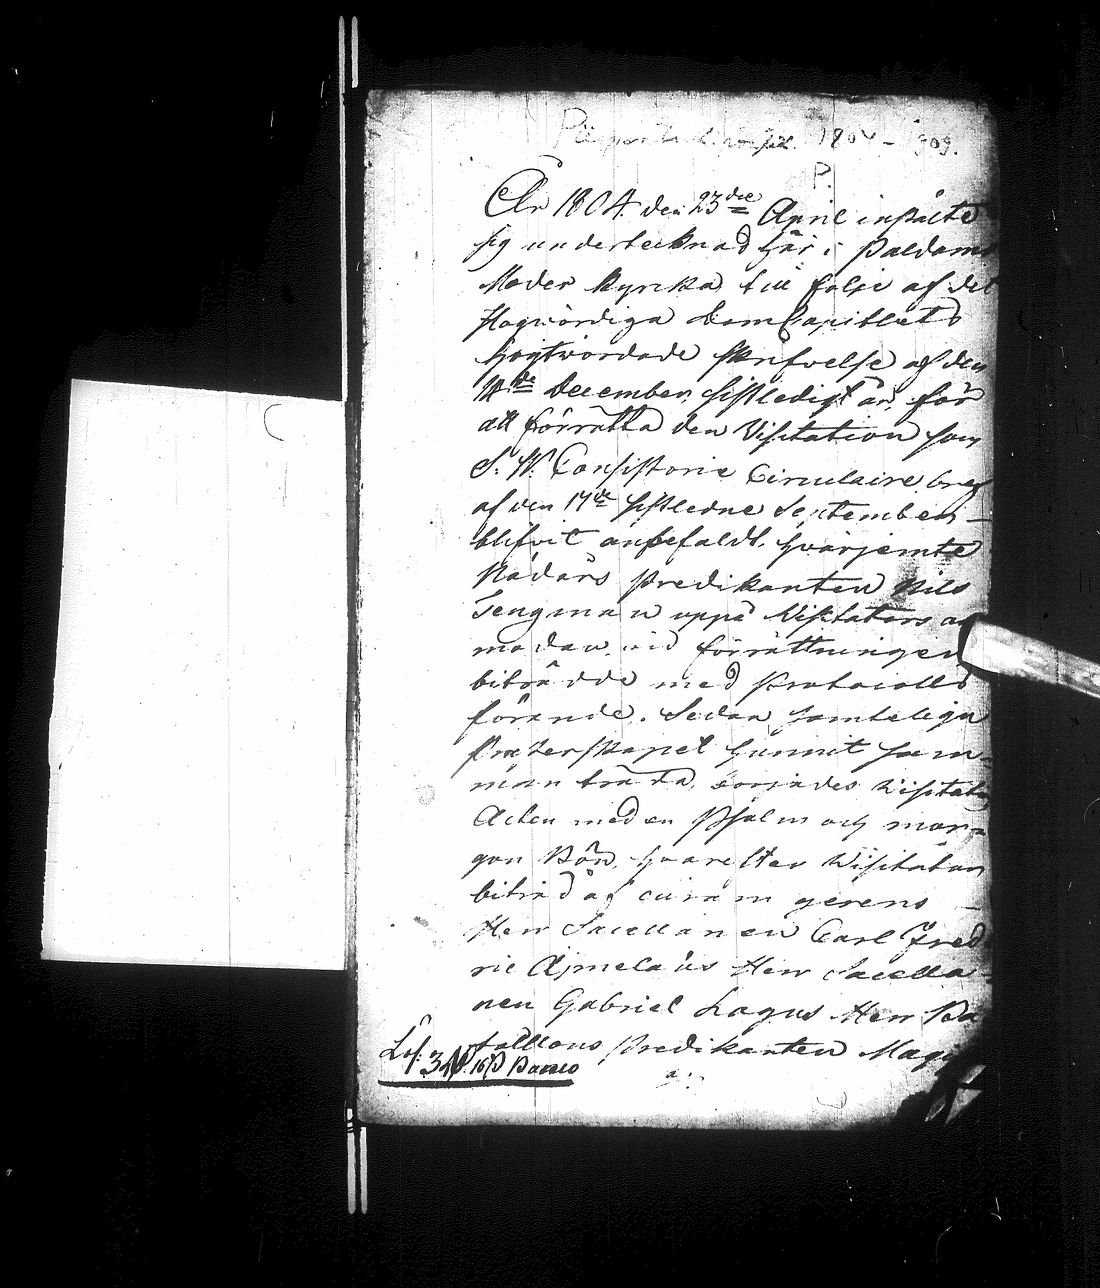 1804 - 909.
P.
År 1804 den 23dee April instälte
sig undertecknad här i Paldamo
Moder kyrcka till följe af det
Högvördiga DomCapitlets
högtvördade skrifvelse af den
14de December sistledigt år, för
att förrätta den Visitation som
S. W. Consistorie Circulaire bref
af den 17de sistledne September
blifvit anbefaldt, hvarjemte
Nådårs Predikanten Nils
Tengman uppå Visitators an
modan vid förrättningen
biträdde med Protocolls
förande. Sedan samtelige
Presterskapet hunnit sam-
man träda, börjades Visitat
Acten med en Psalm och mor-
gon Bön, hvarefter Visitator
biträd af curam gerens
Herr Sacellanen Carl Fred
ric Ajmelæus Herr Sacella
nen Gabriel Lagus Herr Ba
taillons Predikanten Mag